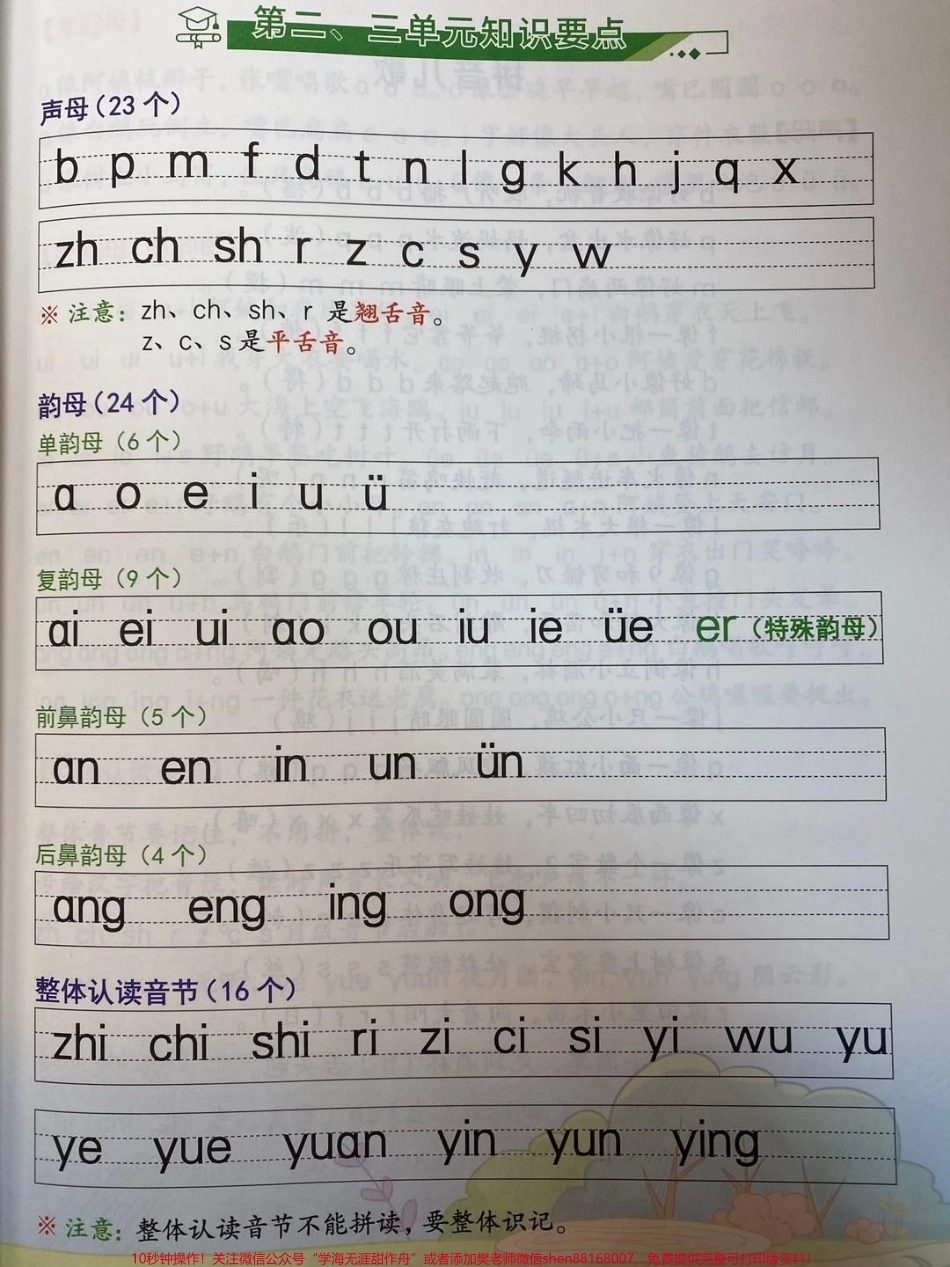 第二、三单元知识要点
声母(23个)
b p m f d t n l g k h j q x
zh ch sh r z c s y w
※ 注意：zh、ch、sh、r 是翘舌音。
z、c、s是平舌音。
韵母(24个)
单韵母(6个)
ɑ o e i u ü
复韵母(9个)
ɑi ei ui ɑo ou iu ie üe er(特殊韵母)
前鼻韵母(5个)
ɑn en in un ün
后鼻韵母(4个)
ɑng eng ing ong
整体认读音节(16个)
zhi chi shi ri zi ci si yi wu yu
ye yue yuɑn yin yun ying
※ 注意：整体认读音节不能拼读，要整体识记。
10秒钟操作！关注微信公众号“学海无涯甜作舟”或者添加樊老师微信shen88168007，免费提供完整可打印版资料！